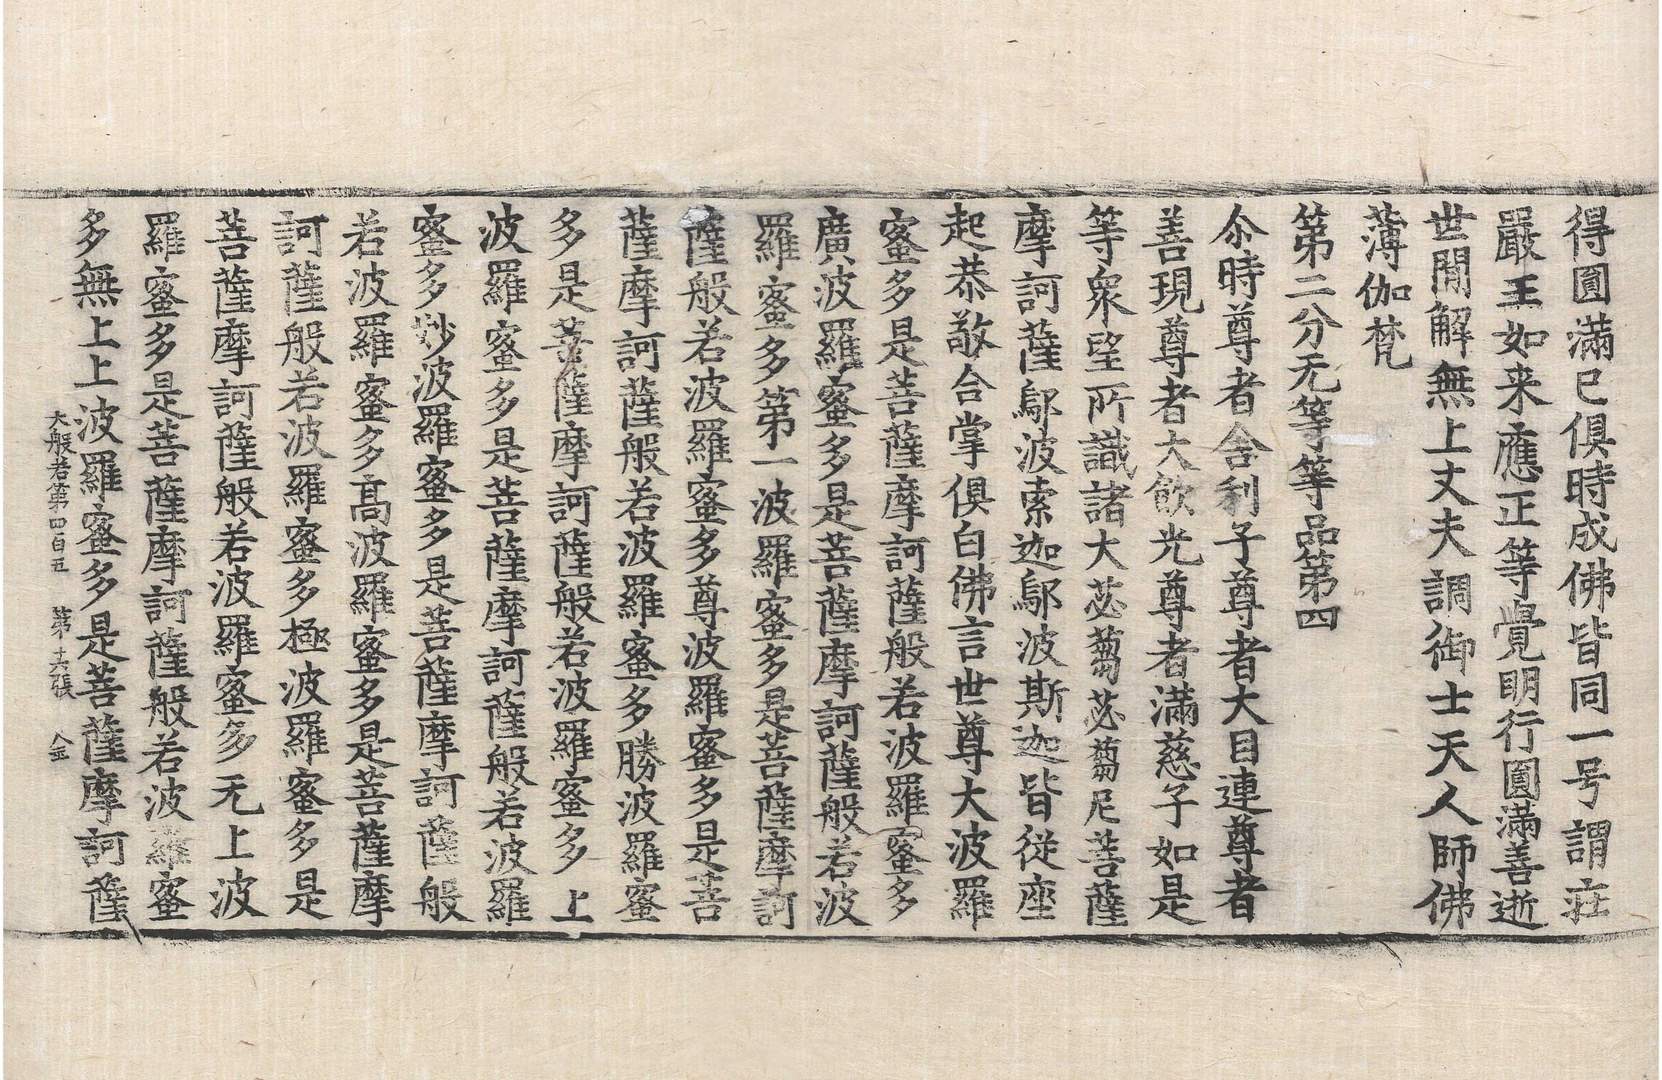 得圓滿已俱時成佛皆同一号謂莊
嚴王如来應正等覺明行圓滿善逝
世閒解無上丈夫調御士天人師佛
薄伽梵
第二分无等等品第四
尒時尊者舍利子尊者大目連尊者
善現尊者大飮光尊者滿慈子如是
等衆望所識諸大苾蒭苾蒭尼菩薩
摩訶薩鄔波索迦鄔波斯迦皆從座
起恭敬合掌俱白佛言世尊大波羅
蜜多是菩薩摩訶薩般若波羅蜜多
廣波羅蜜多是菩薩摩訶薩般若波
羅蜜多第一波羅蜜多是菩薩摩訶
薩般若波羅蜜多尊波羅蜜多是菩
薩摩訶薩般若波羅蜜多勝波羅蜜
多是菩薩摩訶薩般若波羅蜜多上
波羅蜜多是菩薩摩訶薩般若波羅
蜜多妙波羅蜜多是菩薩摩訶薩般
若波羅蜜多高波羅蜜多是菩薩摩
訶薩般若波羅蜜多極波羅蜜多是
菩薩摩訶薩般若波羅蜜多无上波
羅蜜多是菩薩摩訶薩般若波羅蜜
多無上上波羅蜜多是菩薩摩訶薩
大般若第四百五 第十六張